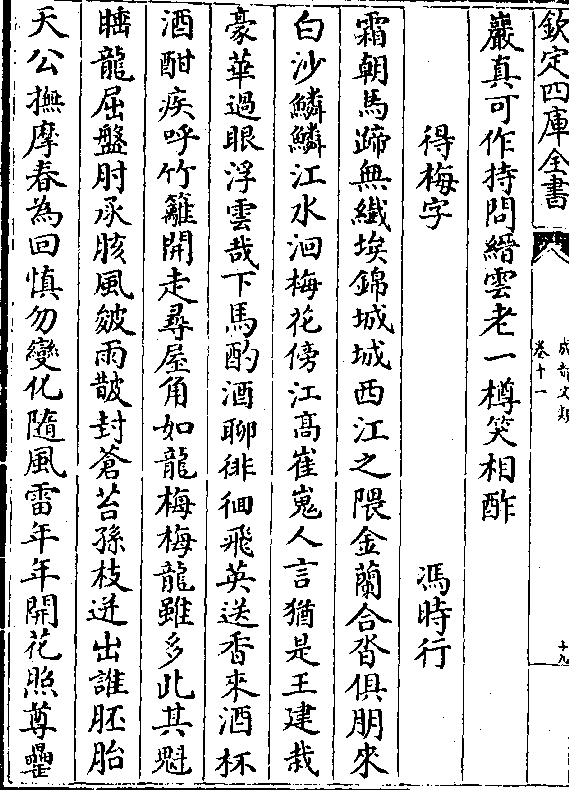 欽定四庫全書
成都文類
卷十一
十九
巖真可作持問縉雲老一樽笑相酢
得梅字
馮時行
霜朝馬蹄無纎埃錦城城西江之隈金蘭合沓俱朋來
白沙鱗鱗江水洄梅花傍江髙崔嵬人言猶是王建栽
豪華過眼浮雲哉下馬酌酒聊徘徊飛英送香來酒杯
酒酣疾呼竹籬開走尋屋角如龍梅梅龍雖多此其魁
睡龍屈盤肘承胲風皴雨皵封蒼苔孫枝迸出誰胚胎
天公撫摩春為回慎勿變化隨風雷年年開花照尊罍